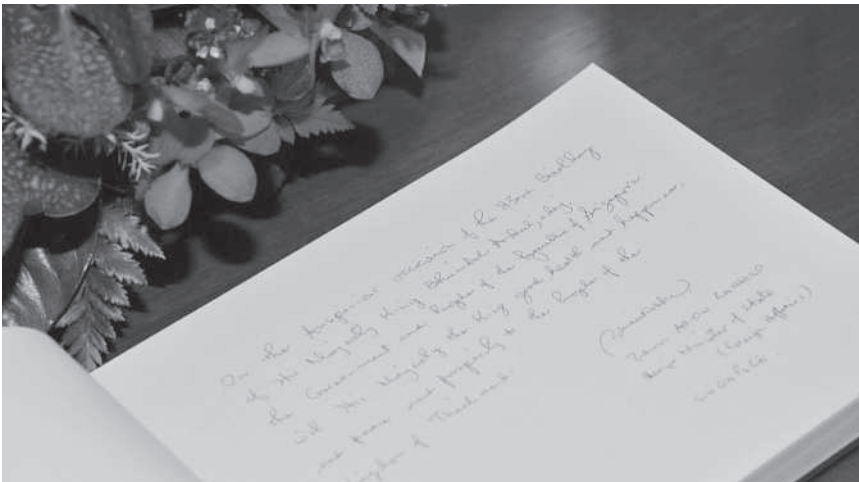 On the auspicious occasion of the 83rd Birthday
of His Majesty King Bhumibol Adulyadej,
the Government and People of the Republic of Singapore
wish His Majesty the King good health and happiness,
and peace and prosperity to the People of the
Kingdom of Thailand.
Zainul Abidin Rasheed
Senior Minister of State
(Foreign Affairs)